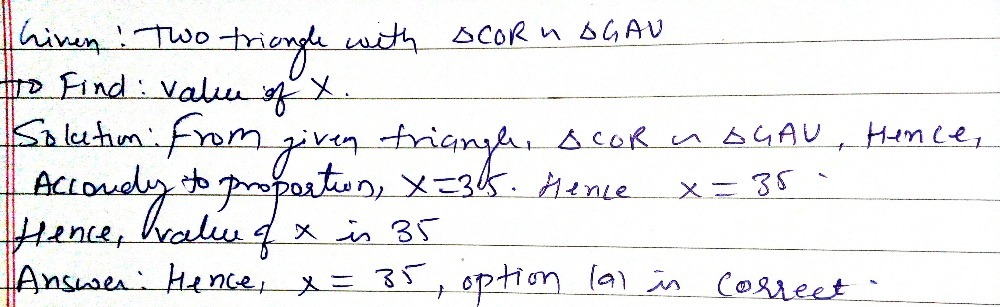 Given : Two triangle with ΔCOR ~ ΔGAU
To Find : value of X.
Solution : From given triangle, ΔCOR ~ ΔGAU, Hence,
Accoudly to proportion, X=35. Hence x = 35.
Hence, value of x is 35
Answer : Hence, x = 35, option (a) is correct.